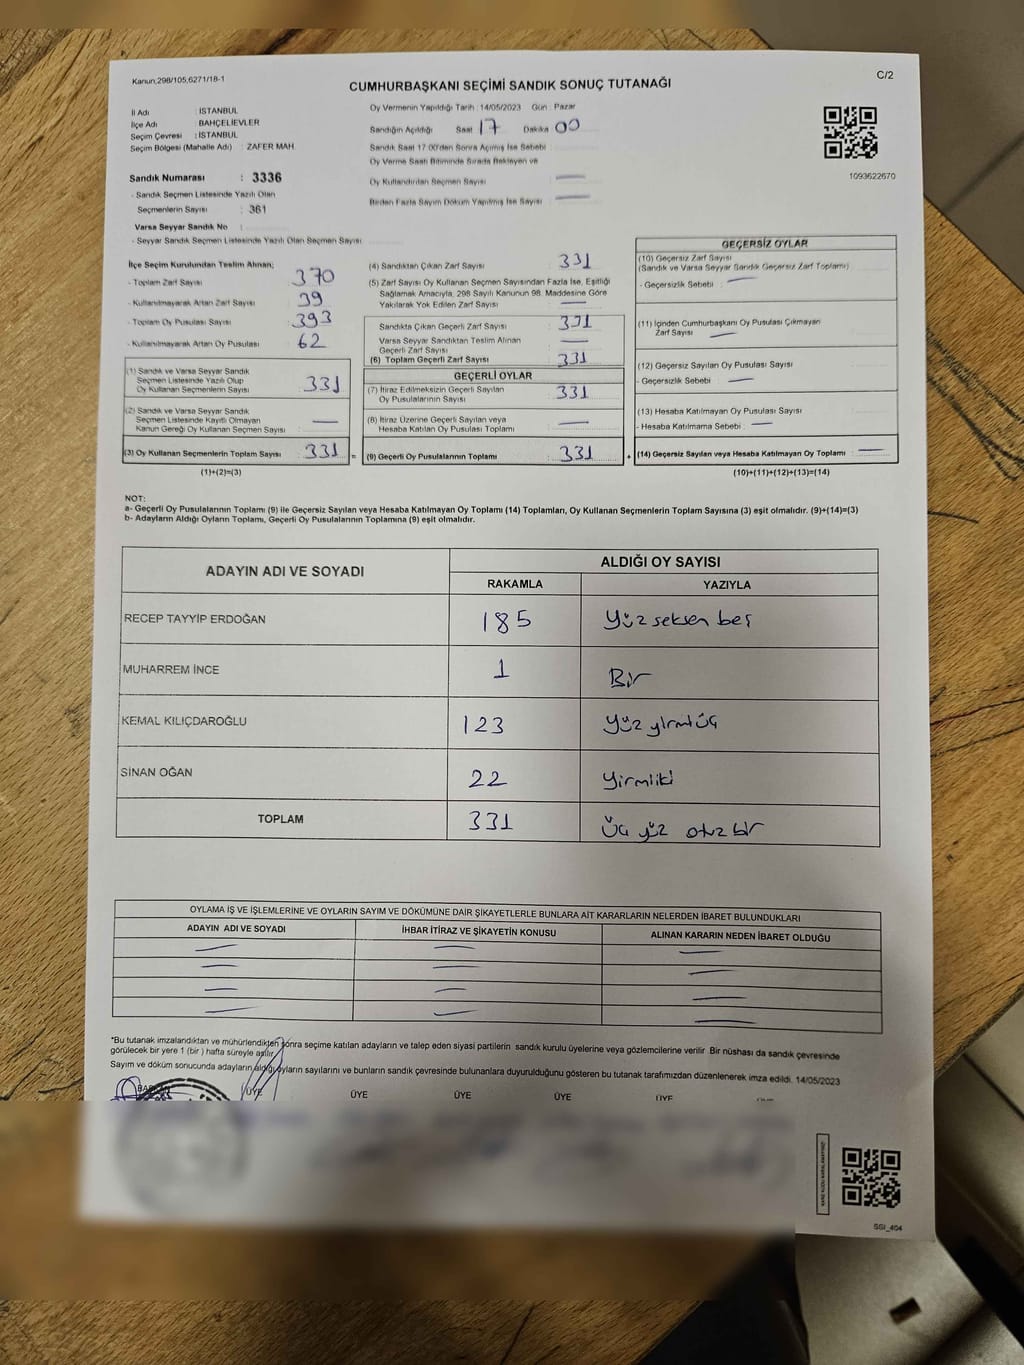 Kanun,298/105,6271/18-1
C/2
CUMHURBAŞKANI SEÇİMİ SANDIK SONUÇ TUTANAĞI
İl Adı : İSTANBUL
İlçe Adı : BAHÇELİEVLER
Seçim Çevresi : İSTANBUL
Seçim Bölgesi (Mahalle Adı) : ZAFER MAH.
Sandık Numarası : 3336
- Sandık Seçmen Listesinde Yazılı Olan
Seçmenlerin Sayısı : 361
Varsa Seyyar Sandık No :
- Seyyar Sandık Seçmen Listesinde Yazılı Olan Seçmen Sayısı
Oy Vermenin Yapıldığı Tarih : 14/05/2023 Gün : Pazar
Sandığın Açıldığı Saat 17 Dakika 00
Sandık Saat 17.00'den Sonra Açılmış İse Sebebi :
Oy Verme Saati Bitiminde Sırada Bekleyen ve
Oy Kullandırılan Seçmen Sayısı : —
Birden Fazla Sayım Döküm Yapılmış İse Sayısı : —
1093622670
İlçe Seçim Kurulundan Teslim Alınan;
- Toplam Zarf Sayısı : 370
- Kullanılmayarak Artan Zarf Sayısı : 39
- Toplam Oy Pusulası Sayısı : 393
- Kullanılmayarak Artan Oy Pusulası : 62
(1) Sandık ve Varsa Seyyar Sandık
Seçmen Listesinde Yazılı Olup
Oy Kullanan Seçmenlerin Sayısı : 331
(2) Sandık ve Varsa Seyyar Sandık
Seçmen Listesinde Kayıtlı Olmayan
Kanun Gereği Oy Kullanan Seçmen Sayısı : —
(3) Oy Kullanan Seçmenlerin Toplam Sayısı : 331 =
(1)+(2)=(3)
(4) Sandıktan Çıkan Zarf Sayısı : 331
(5) Zarf Sayısı Oy Kullanan Seçmen Sayısından Fazla İse, Eşitliği
Sağlamak Amacıyla, 298 Sayılı Kanunun 98. Maddesine Göre
Yakılarak Yok Edilen Zarf Sayısı : —
Sandıkta Çıkan Geçerli Zarf Sayısı : 331
Varsa Seyyar Sandıktan Teslim Alınan
Geçerli Zarf Sayısı : —
(6) Toplam Geçerli Zarf Sayısı : 331
GEÇERLİ OYLAR
(7) İtiraz Edilmeksizin Geçerli Sayılan
Oy Pusulalarının Sayısı : 331
(8) İtiraz Üzerine Geçerli Sayılan veya
Hesaba Katılan Oy Pusulası Toplamı : —
(9) Geçerli Oy Pusulalarının Toplamı : 331 +
GEÇERSİZ OYLAR
(10) Geçersiz Zarf Sayısı
(Sandık ve Varsa Seyyar Sandık Geçersiz Zarf Toplamı)
- Geçersizlik Sebebi : —
(11) İçinden Cumhurbaşkanı Oy Pusulası Çıkmayan
Zarf Sayısı : —
(12) Geçersiz Sayılan Oy Pusulası Sayısı
- Geçersizlik Sebebi : —
(13) Hesaba Katılmayan Oy Pusulası Sayısı
- Hesaba Katılmama Sebebi : —
(14) Geçersiz Sayılan veya Hesaba Katılmayan Oy Toplamı : —
(10)+(11)+(12)+(13)=(14)
NOT:
a- Geçerli Oy Pusulalarının Toplamı (9) ile Geçersiz Sayılan veya Hesaba Katılmayan Oy Toplamı (14) Toplamları, Oy Kullanan Seçmenlerin Toplam Sayısına (3) eşit olmalıdır. (9)+(14)=(3)
b- Adayların Aldığı Oyların Toplamı, Geçerli Oy Pusulalarının Toplamına (9) eşit olmalıdır.
ADAYIN ADI VE SOYADI
ALDIĞI OY SAYISI
RAKAMLA YAZIYLA
RECEP TAYYİP ERDOĞAN 185 Yüz seksen beş
MUHARREM İNCE 1 Bir
KEMAL KILIÇDAROĞLU 123 Yüz yirmi üç
SİNAN OĞAN 22 Yirmiiki
TOPLAM 331 Üç yüz otuz bir
OYLAMA İŞ VE İŞLEMLERİNE VE OYLARIN SAYIM VE DÖKÜMÜNE DAİR ŞİKAYETLERLE BUNLARA AİT KARARLARIN NELERDEN İBARET BULUNDUKLARI
ADAYIN ADI VE SOYADI İHBAR İTİRAZ VE ŞİKAYETİN KONUSU ALINAN KARARIN NEDEN İBARET OLDUĞU
*Bu tutanak imzalandıktan ve mühürlendikten sonra seçime katılan adayların ve talep eden siyasi partilerin sandık kurulu üyelerine veya gözlemcilerine verilir. Bir nüshası da sandık çevresinde
görülecek bir yere 1 (bir ) hafta süreyle asılır.
Sayım ve döküm sonucunda adayların aldığı oyların sayılarını ve bunların sandık çevresinde bulunanlara duyurulduğunu gösteren bu tutanak tarafımızdan düzenlenerek imza edildi. 14/05/2023
BAŞKAN ÜYE ÜYE ÜYE ÜYE ÜYE
SSI_404